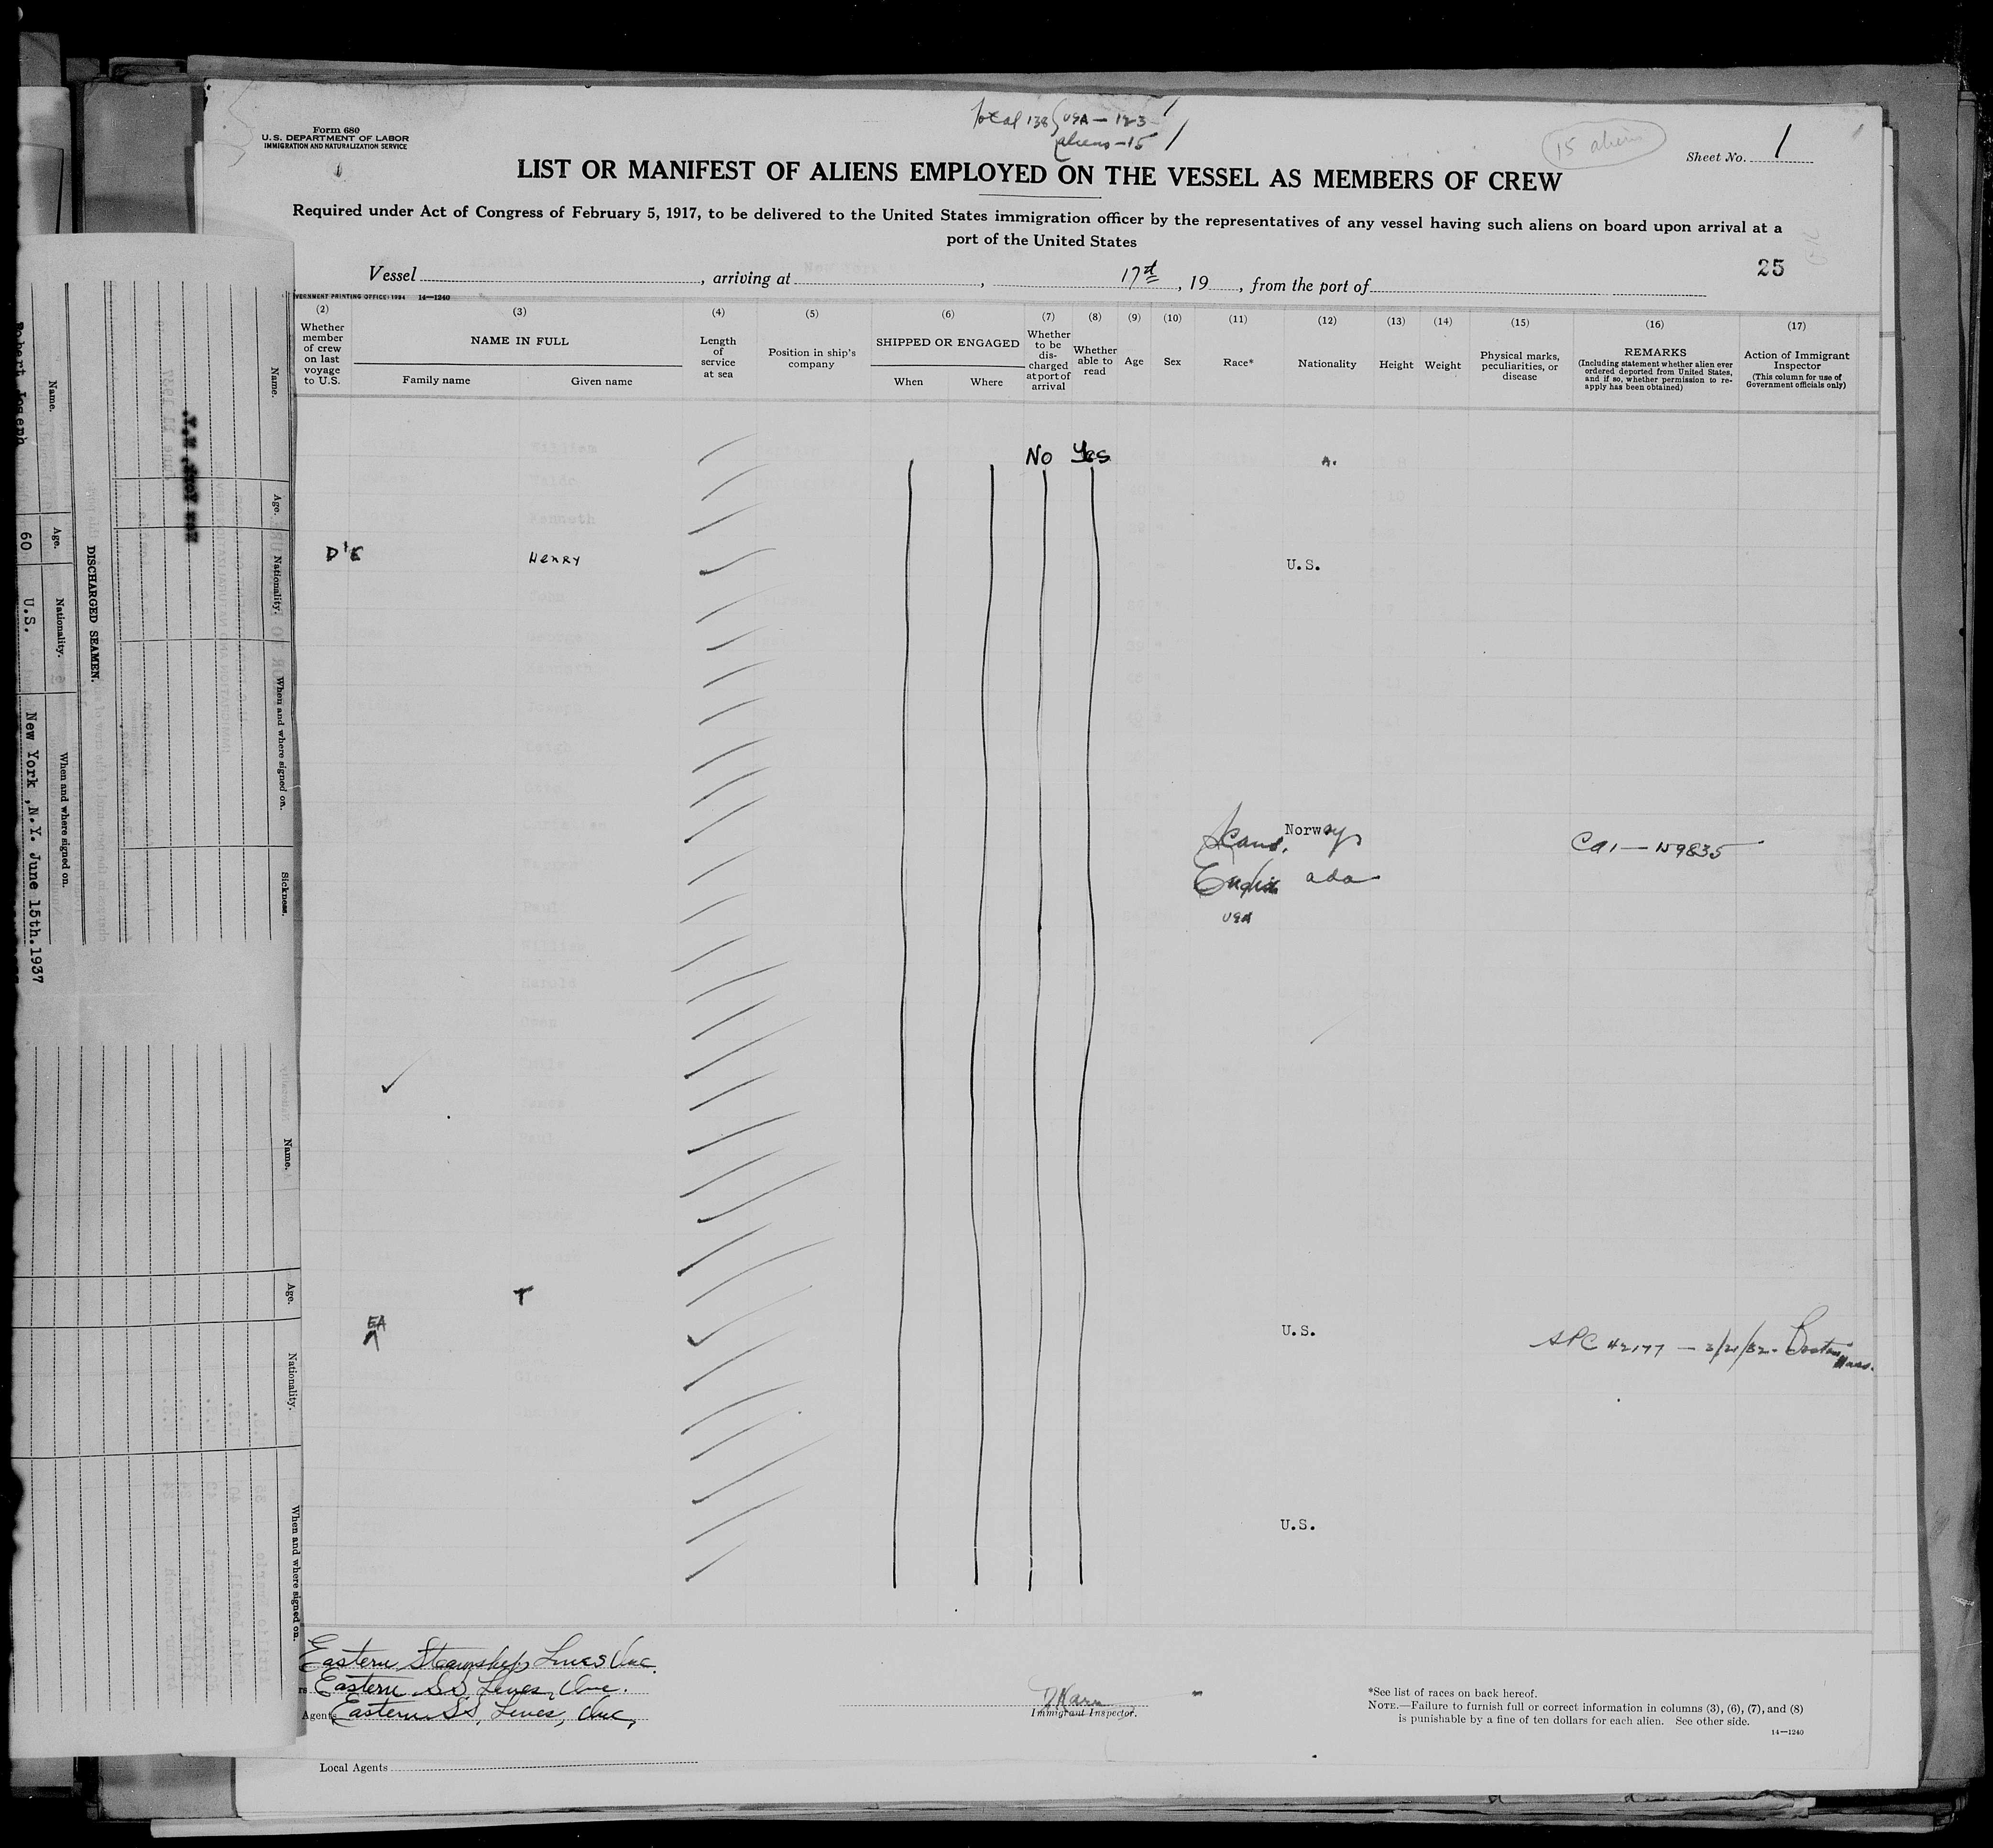 Form 680
U.S. DEPARTMENT OF LABOR
IMMIGRATION AND NATURALIZATION SERVICE
Total 138 { USA - 123
aliens - 15
15 aliens
Sheet No. 1
LIST OR MANIFEST OF ALIENS EMPLOYED ON THE VESSEL AS MEMBERS OF CREW
Required under Act of Congress of February 5, 1917, to be delivered to the United States immigration officer by the representatives of any vessel having such aliens on board upon arrival at a
port of the United States
25
Vessel , arriving at , 17th , 19 , from the port of
VERNMENT PRINTING OFFICE: 1934 14—1240
(2) Whether member of crew on last voyage to U.S.
(3) NAME IN FULL
Family name Given name
(4) Length of service at sea
(5) Position in ship's company
(6) SHIPPED OR ENGAGED
When Where
(7) Whether to be discharged at port of arrival
(8) Whether able to read
(9) Age
(10) Sex
(11) Race*
(12) Nationality
(13) Height
(14) Weight
(15) Physical marks, peculiarities, or disease
(16) REMARKS
(Including statement whether alien ever ordered deported from United States, and if so, whether permission to re-apply has been obtained)
(17) Action of Immigrant Inspector
(This column for use of Government officials only)
No Yes A.
Henry U.S.
Scand. Norway
ada
USA
T
EA U.S. Boston Mass.
U.S.
Eastern Steamship Lines Inc.
rs Eastern SS Lines, Inc.
Agents Eastern SS, Lines, Inc,
Immigrant Inspector.
*See list of races on back hereof.
NOTE.—Failure to furnish full or correct information in columns (3), (6), (7), and (8)
is punishable by a fine of ten dollars for each alien. See other side.
14—1240
Local Agents
DISCHARGED SEAMEN.
Name. Age. Nationality. When and where signed on.
Robert Joseph 60 U.S. New York, N.Y. June 15th.1937
Name. Age. Nationality. When and where signed on. Sickness.
Name. Age. Nationality. When and where signed on.